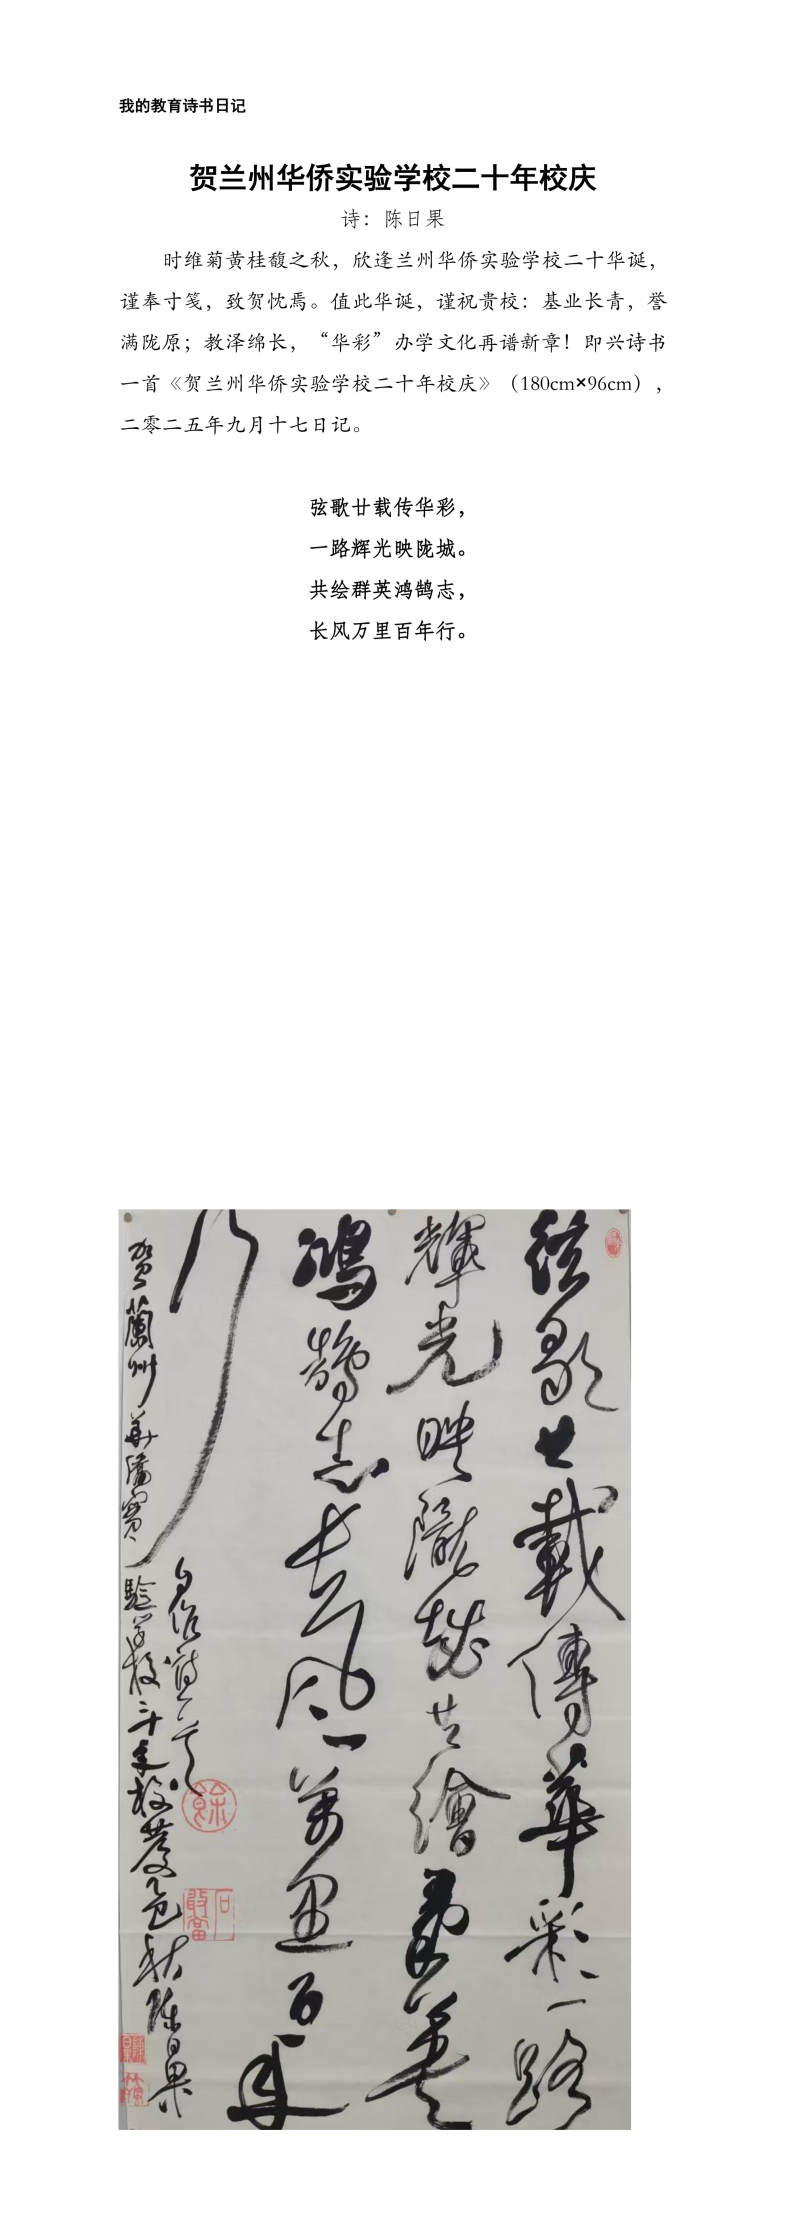 我的教育诗书日记
贺兰州华侨实验学校二十年校庆
诗：陈日果
时维菊黄桂馥之秋，欣逢兰州华侨实验学校二十华诞，
谨奉寸笺，致贺忱焉。值此华诞，谨祝贵校：基业长青，誉
满陇原；教泽绵长，“华彩”办学文化再谱新章！即兴诗书
一首《贺兰州华侨实验学校二十年校庆》（180cm×96cm），
二零二五年九月十七日记。
弦歌廿载传华彩，
一路辉光映陇城。
共绘群英鸿鹄志，
长风万里百年行。
弦歌廿載傳華彩一路
輝光映隴城共繪羣英
鴻鵠志长风萬里百年
行
賀蘭州華僑實驗学校二十年校慶乙巳秋陈日果